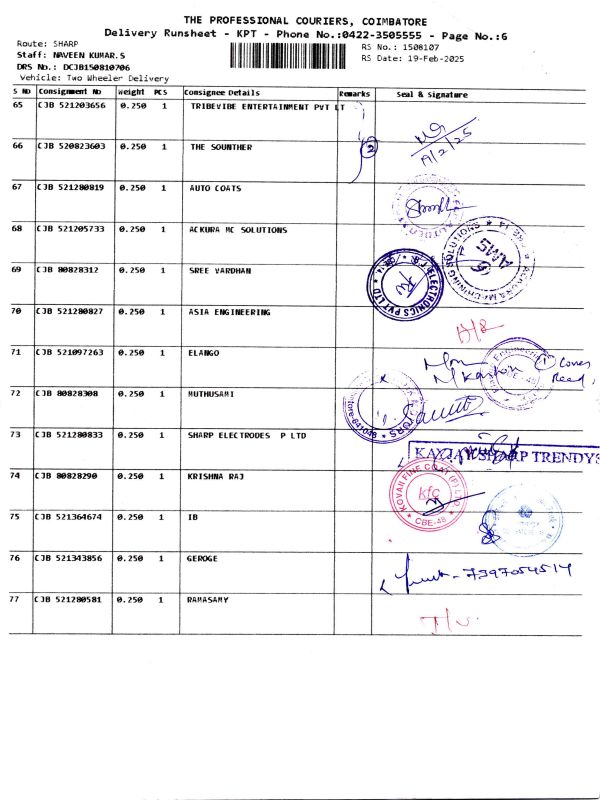 THE PROFESSIONAL COURIERS, COIMBATORE
Delivery Runsheet - KPT - Phone No.:0422-3505555 - Page No.:6
Route: SHARP
Staff: NAVEEN KUMAR.S
DRS No.: DCJB150810706
Vehicle: Two Wheeler Delivery
RS No.: 1508107
RS Date: 19-Feb-2025
S No Consignment No Weight PCS Consignee Details Remarks Seal & Signature
65 CJB 521203656 0.250 1 TRIBEVIBE ENTERTAINMENT PVT LT
66 CJB 520823603 0.250 1 THE SOUNTHER 2
67 CJB 521280819 0.250 1 AUTO COATS
68 CJB 521205733 0.250 1 ACKURA MC SOLUTIONS
69 CJB 80828312 0.250 1 SREE VARDHAN
70 CJB 521280827 0.250 1 ASIA ENGINEERING
71 CJB 521097263 0.250 1 ELANGO
72 CJB 80828308 0.250 1 MUTHUSAMI
73 CJB 521280833 0.250 1 SHARP ELECTRODES P LTD
74 CJB 80828290 0.250 1 KRISHNA RAJ
KOVAI FINE COAT (P) LTD
kfc
CBE-48
75 CJB 521364674 0.250 1 IB
76 CJB 521343856 0.250 1 GEROGE
7397054514
77 CJB 521280581 0.250 1 RAMASAMY